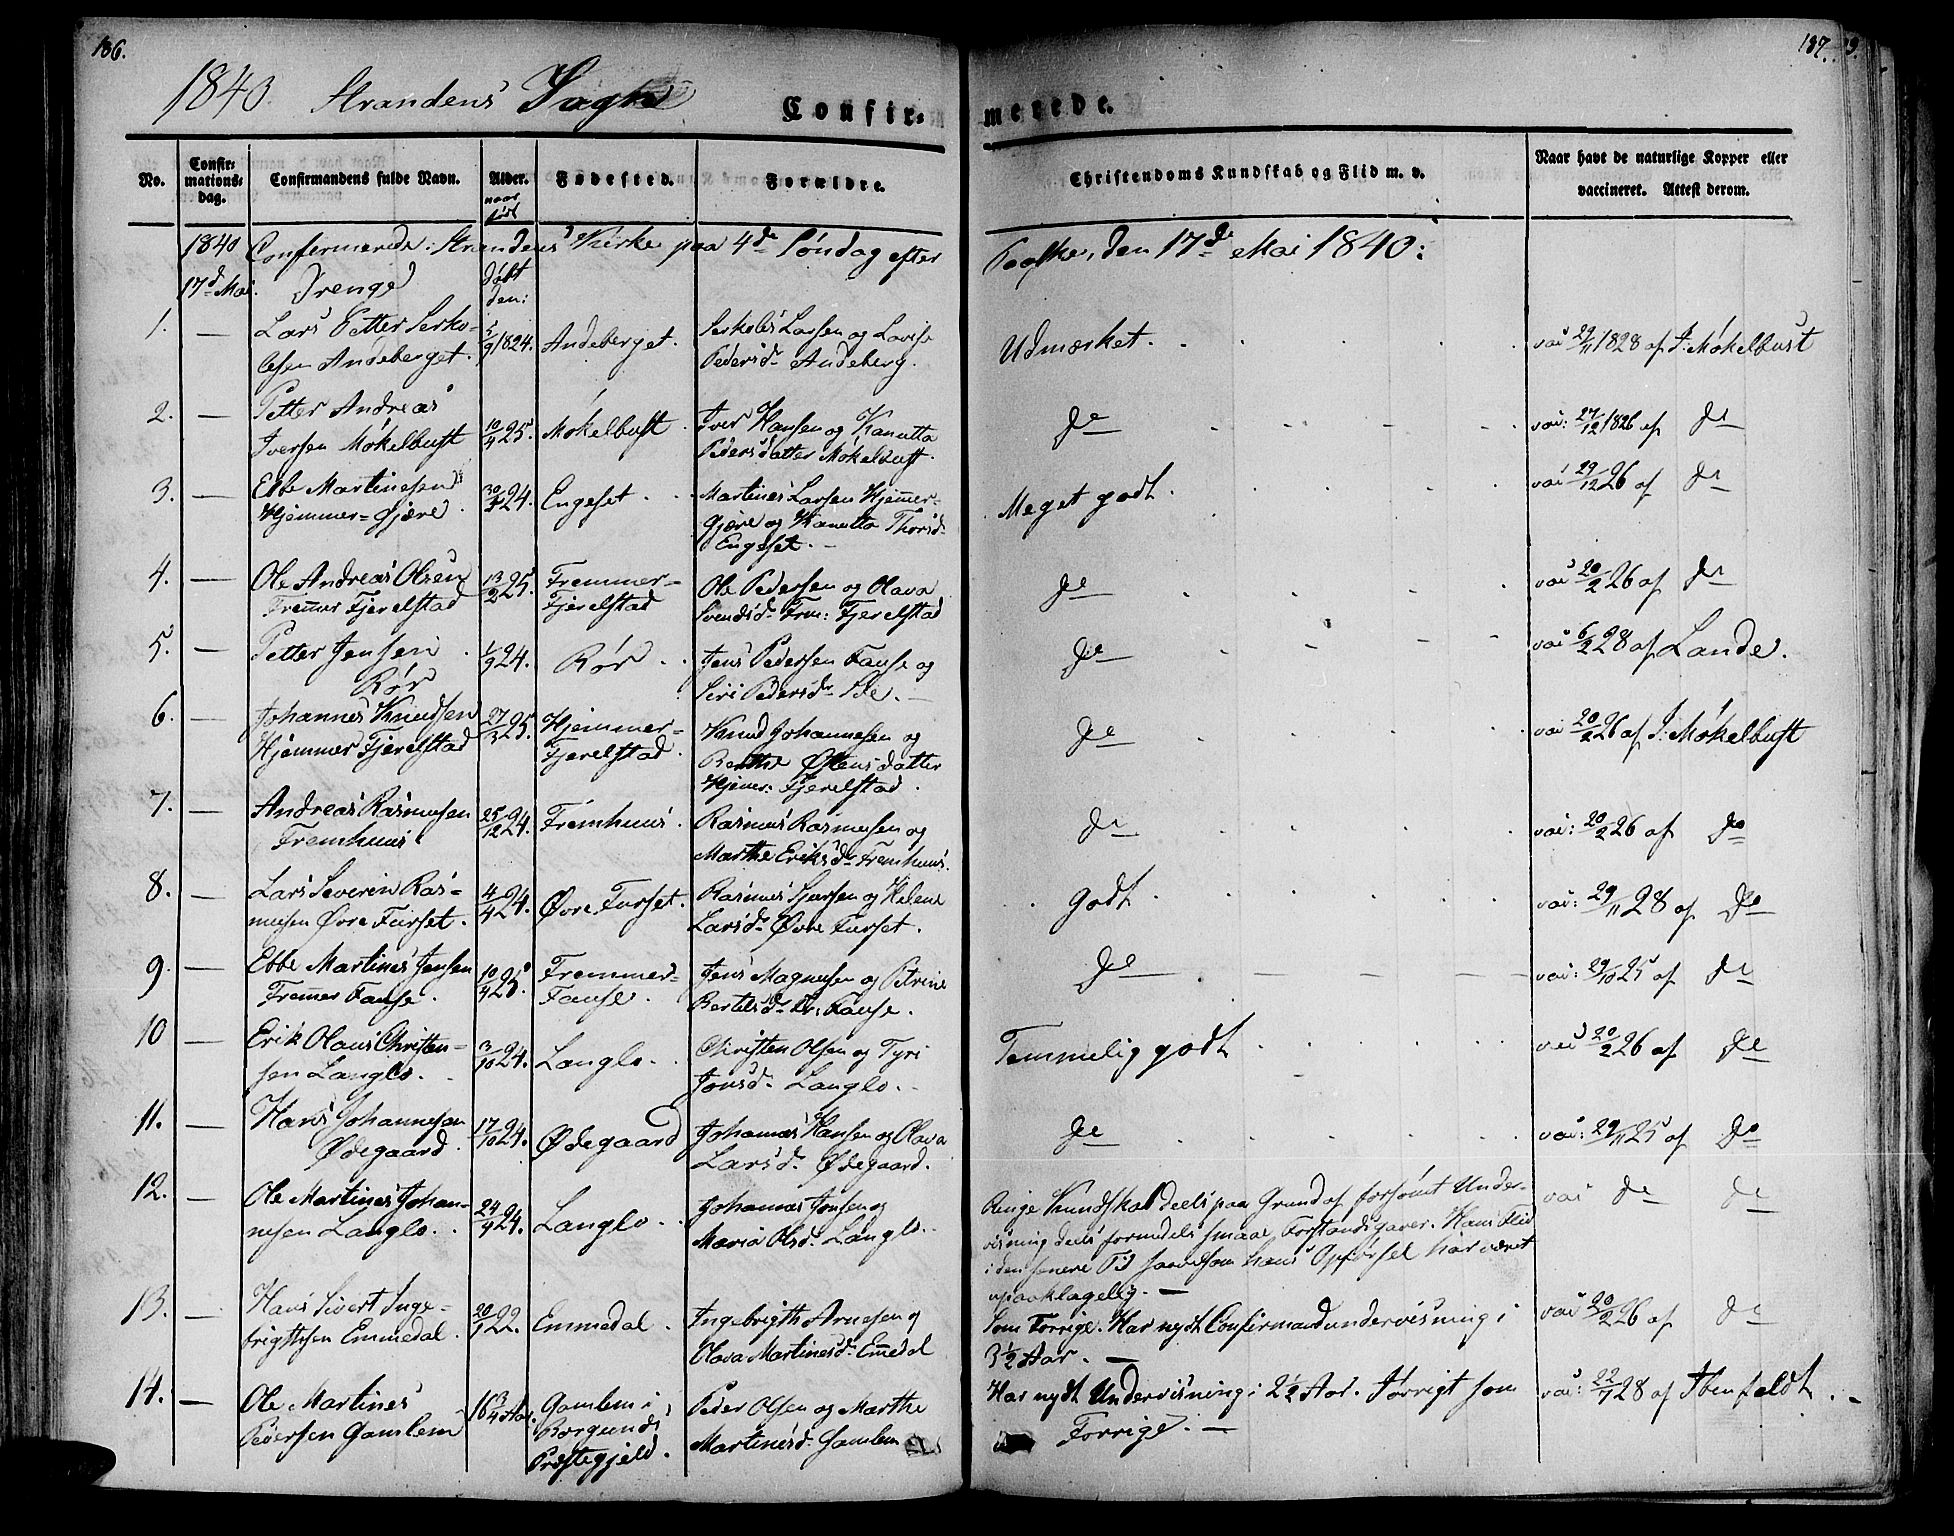 186.
187.
1840. Strandens Sogn
Confir-
merede.
No.
Confir-
mations-
dag.
Confirmandens fulde Navn.
Alder.
naar
født
Fødested.
Forældre.
Christendoms Kundskab og Flid m. v.
Naar havt de naturlige Kopper eller
vaccineret. Attest derom.
1840 Confermerede i Strandens Kirke paa 4de Søndag efter Paaske, den 17de Mai 1840:
17d Mai. Drenge
døbt
den:
1. — Lars Petter Serko-
lesen Andeberget.
5/9 1824. Andeberget.
Serkoles Larsen og Lovise
Pedersd. Andeberg.
Udmærket.
vac 29/11 1828 af J: Møkelbust
2. — Petter Andreas
Iversen Møkelbust
10/4 25. Møkelbust.
Iver Hansen og Kanutta
Pedersdatter Møkelbust.
do
vac: 27/12 1826 af do
3. — Ebbe Martinesen
Hjemmer-Gjære.
24. Engeset.
Martines Larsen Hjemmer-
gjære og Kanutta Thorsd.
Engeset.
Meget godt.
vac 29/12 26 af do
4. — Ole Andreas Olsen
Fremer Fjerelstad
13/2 25. Fremmer-
Fjerelstad
Ole Pedersen og Olava
Svendsd. Frm: Fjerelstad
do
vac 20/2 26 af do
5. — Petter Jensen
Rør
1/9 24. Rør.
Jens Pedersen Fause og
Siri Pedersd.
do
vac 6/2 28 af Lande.
6. — Johannes Knudsen
Hjemmer Fjerelstad
27/3 25. Hjemmer-
Fjerelstad.
Knud Johannesen og
Berthe Østensdatter
Hjemer: Fjerelstad.
do
vac 20/2 26 af J: Møkelbust
7. — Andreas Rasmusen
Fremhuus
25/12 24. Fremhuus.
Rasmus Rasmusen og
Marthe Eriksd. Fremhuus.
do
vac: 20/2 26 af do
8. — Lars Severin Ras-
musen Øvre Furset.
4/4 24. Øvre Furset.
Rasmus Sjursen og Helene
Larsd. Øvre Furset.
godt.
vac: 29/11 28 af do
9. — Ebbe Martines Jensen
Fremer Fause.
10/4 25. Fremmer-
Fause.
Jens Magnusen og Petrine
Bertelsd. Fr: Fause.
do
vac: 29/10 25 af do
10 — Erik Olaus Christen-
sen Langlo.
3/10 24. Langlo.
Christen Olsen og Tyri
Jonsd. Langlo.
Temmelig godt.
vac 20/2 26 af do
11. — Hans Johannesen
Ødegaard.
17/10 24. Ødegaard
Johannes Hansen og Olava
Larsd. Ødegaard.
do
vac: 29/11 25 af do
12. — Ole Martines Johan-
nesen Langlo.
24/4 24. Langlo.
Johannes Jonsen og
Maria Olsd. Langlo.
Ringe Kundskab deels paa Grund af forsømt Under-
visning deels formedels smaae Forstandsgaver. Hans Flid
i den senere Tid saavelsom hans Opførsel har været
upaaklagelig. —
vac do do
13. — Hans Sivert Inge-
brigtsen Emmedal.
20/1 22. Emmedal.
Ingebrigth Arnesen og
Olava Martinesd. Emedal
Som Forrige. Har nydt Confirmandundervisning i
3 1/2 Aar. —
vac 20/2 26 af do
14. — Ole Martines
Pedersen Gamlem
16 3/4 Aar. Gamlem i
Borgunds
Præstegjeld.
Peder Olsen og Marthe
Martinesd. Gamlem
Har nydt Undervisning i 2 1/2 Aar. Forrigt som
Forrige. —
vac: 22/1 28 af Ibenfeldt.